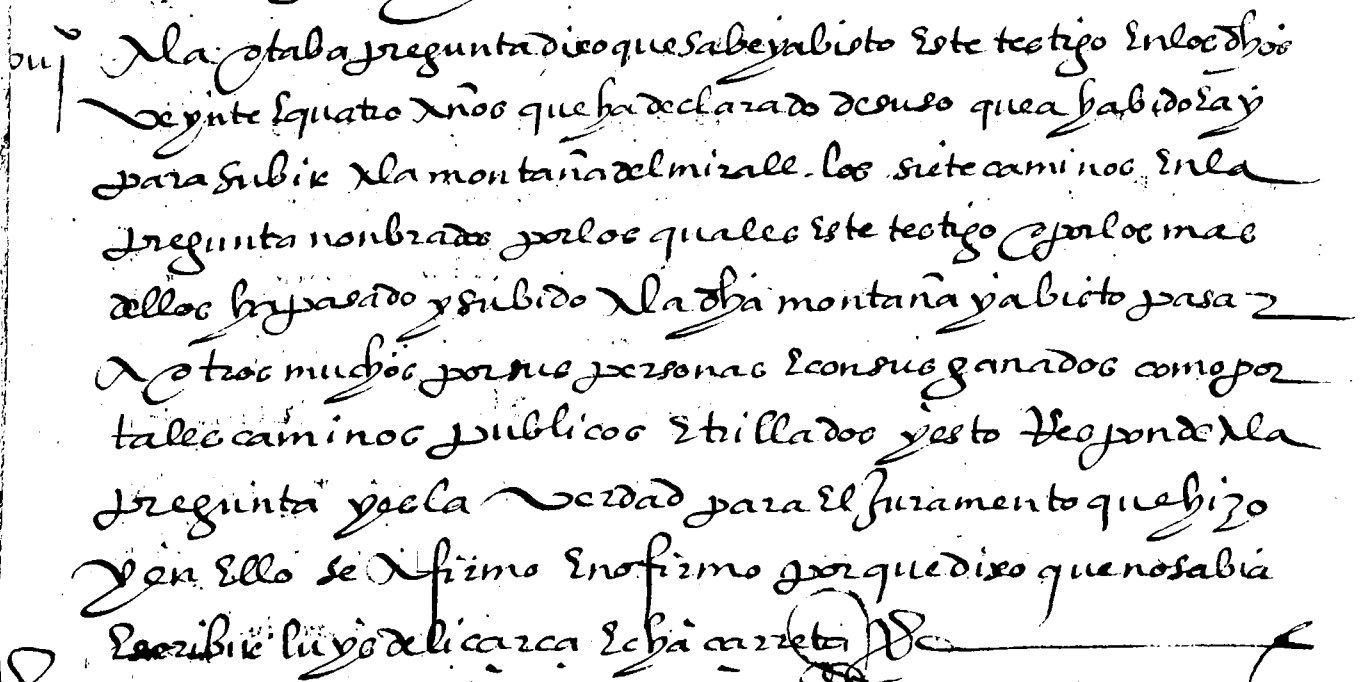 viijº A la otaba pregunta dixo que sabe y a bisto este testigo en los dhos
veynte e quatro años que ha declarado de suso que a habido e ay
para subir a la montaña del miralle los siete caminos en la
pregunta nonbrados por los quales este testigo o por los mas
dellos ha pasado y subido a la dha montaña y a bisto pasar
a otros muchos por sus personas e con sus ganados como por
tales caminos publicos e trillados y esto Responde a la
pregunta y es la verdad para el Juramento que hizo
y en ello se afirmo e no firmo porque dixo que no sabia
escribir luys de